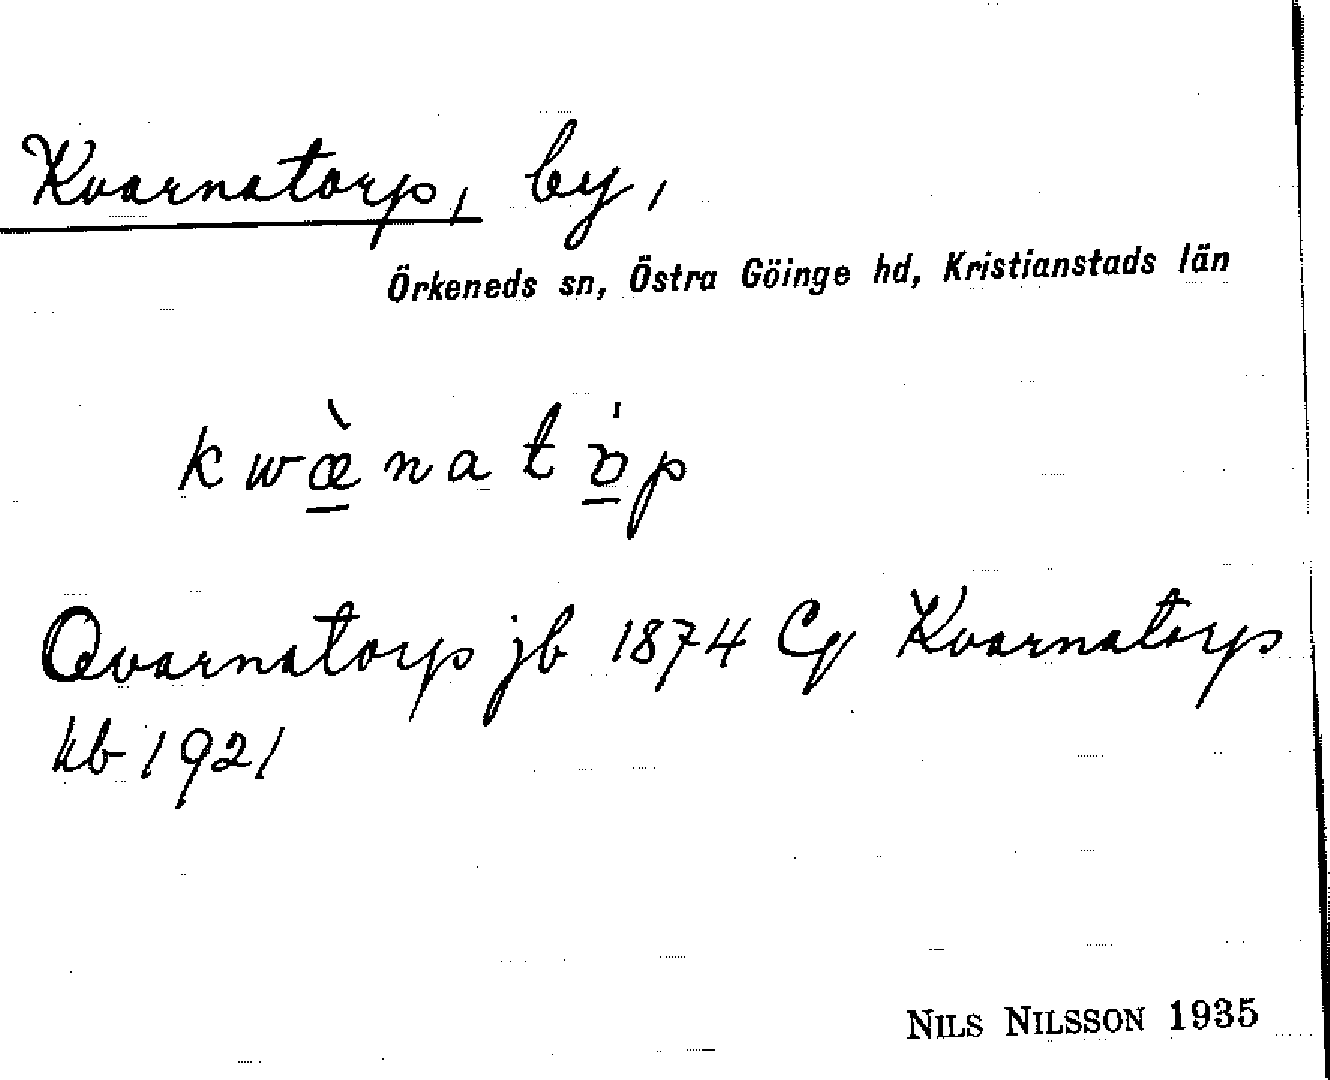 Kvarnatorp, by,
Örkeneds sn, Östra Göinge hd, Kristianstads län
kwæ̲̀natɒ̲̍p
Qvarnatorp jb 1874 Cg Kvarnatorp
kb 1921
NILS NILSSON 1935